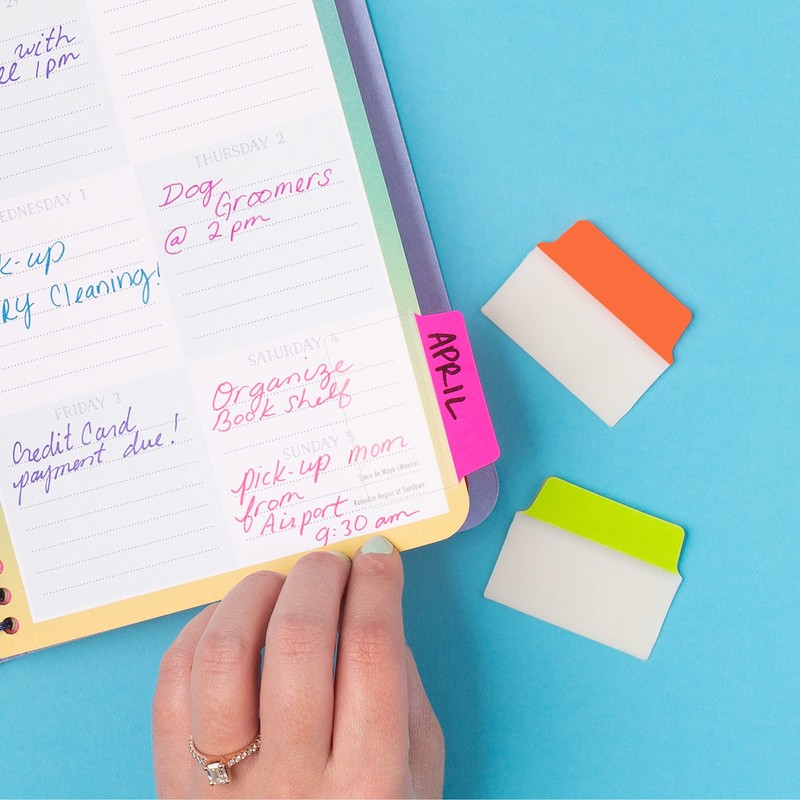 29
with
1pm
THURSDAY 2
Dog
Groomers
@ 2pm
WEDNESDAY 1
k-up
RY Cleaning!
SATURDAY 4
Organize
Book shelf
APRIL
FRIDAY 3
Credit Card
payment due!
SUNDAY 5
pick-up mom
Cinco de Mayo (Mexico)
from
Ramadan Begins at Sundown
Airport
9:30 am